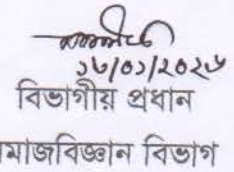 ১৮/০১/২০২৬
বিভাগীয় প্রধান
মাজবিজ্ঞান বিভাগ